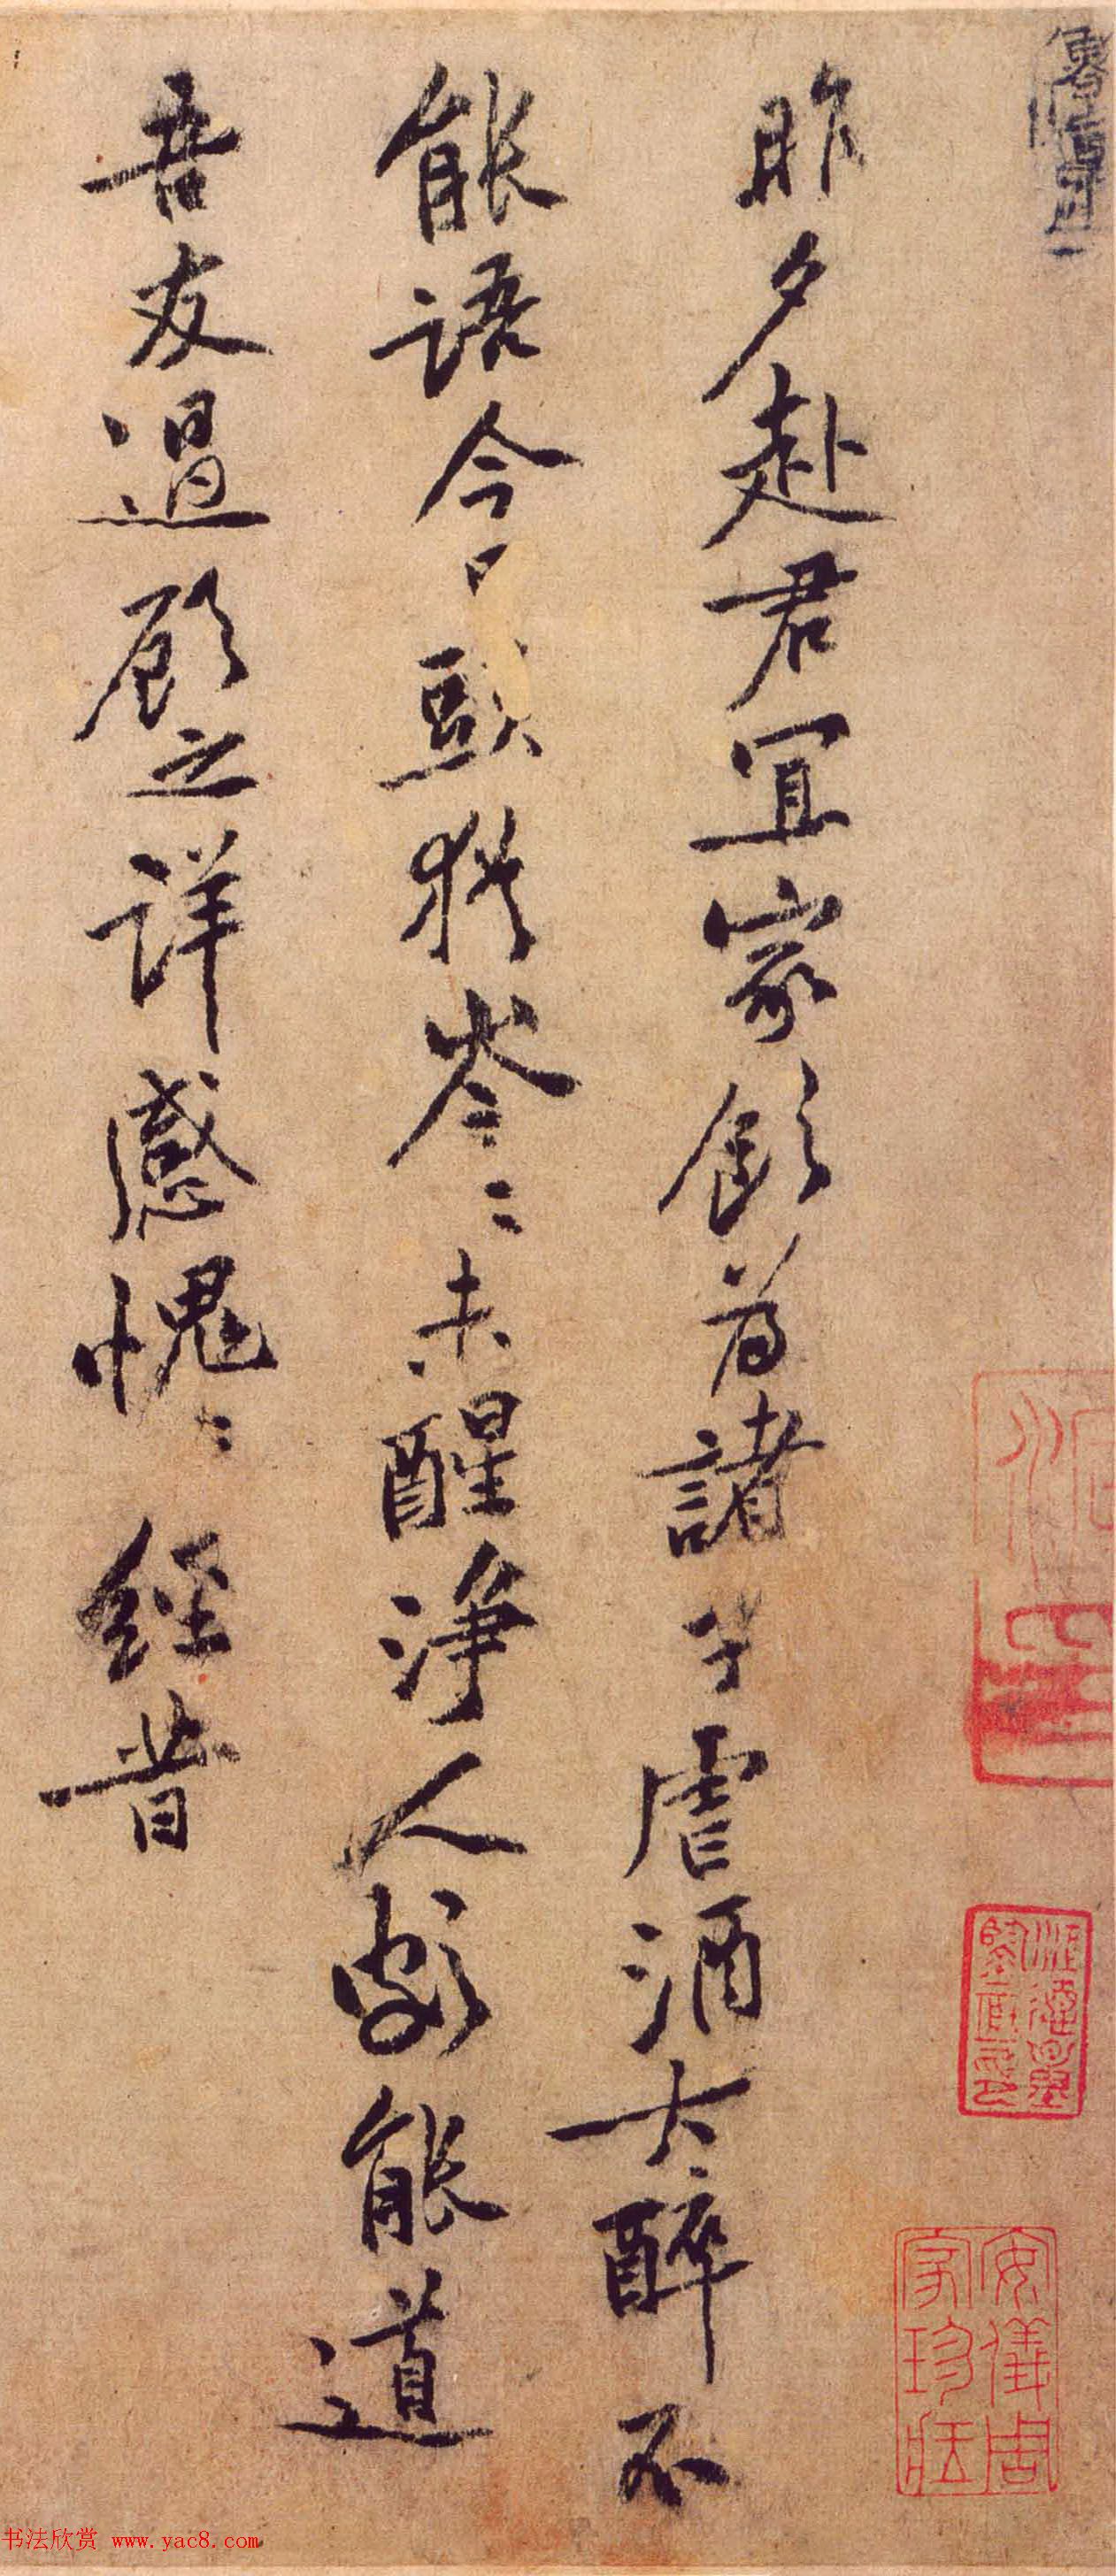 昨夕赴君宜家飲為諸子虐酒大醉不
能語今日頭猶岑岑〻未醒淨人劣能道
吾友過顧之詳感愧〻經昔
安儀周
家珍藏
书法欣赏 www.yac8.com